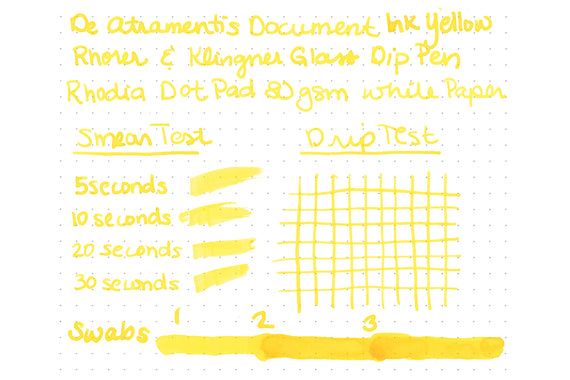 De Atramentis Document Ink Yellow
Rhorer & Klingner Glass Dip Pen
Rhodia Dot Pad 80 gsm white Paper
Smear Test
Drip Test
5 seconds
10 seconds
20 seconds
30 seconds
Swabs 1 2 3